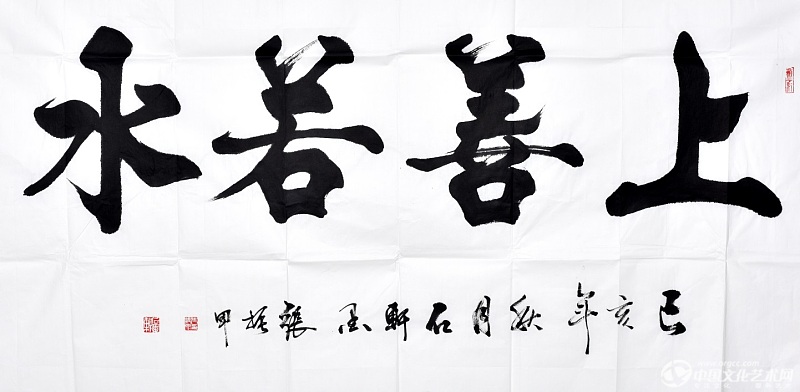 上善若水
己亥年秋月石軒墨張振甲
中国文化艺术网